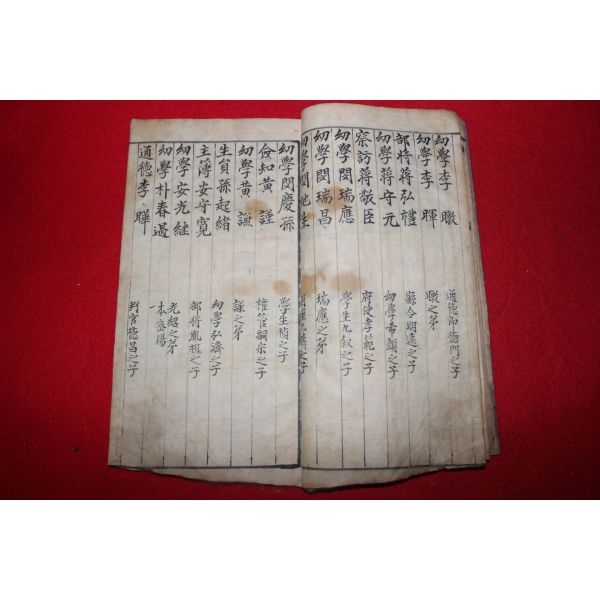 幼學李䁱 通德郞德門之子
幼學李暉 䁱之弟
部將蔣弘禮 縣令明遠之子
幼學蔣守元 幼學希顔之子
察訪蔣敬臣 府使孝範之子
幼學閔瑞應 學生九叙之子
幼學閔瑞昌 瑞應之弟
幼學閔
幼學閔慶孫 學生禎之子
僉知黃謹 權管嗣宗之子
幼學黃譕 謹之弟
生員孫起緖 幼學弘濟之子
主簿安守寬 部將胤祖之子
幼學安光繼 光紹之弟
幼學朴春遇 一本密陽
通德李曄 判官德昌之子